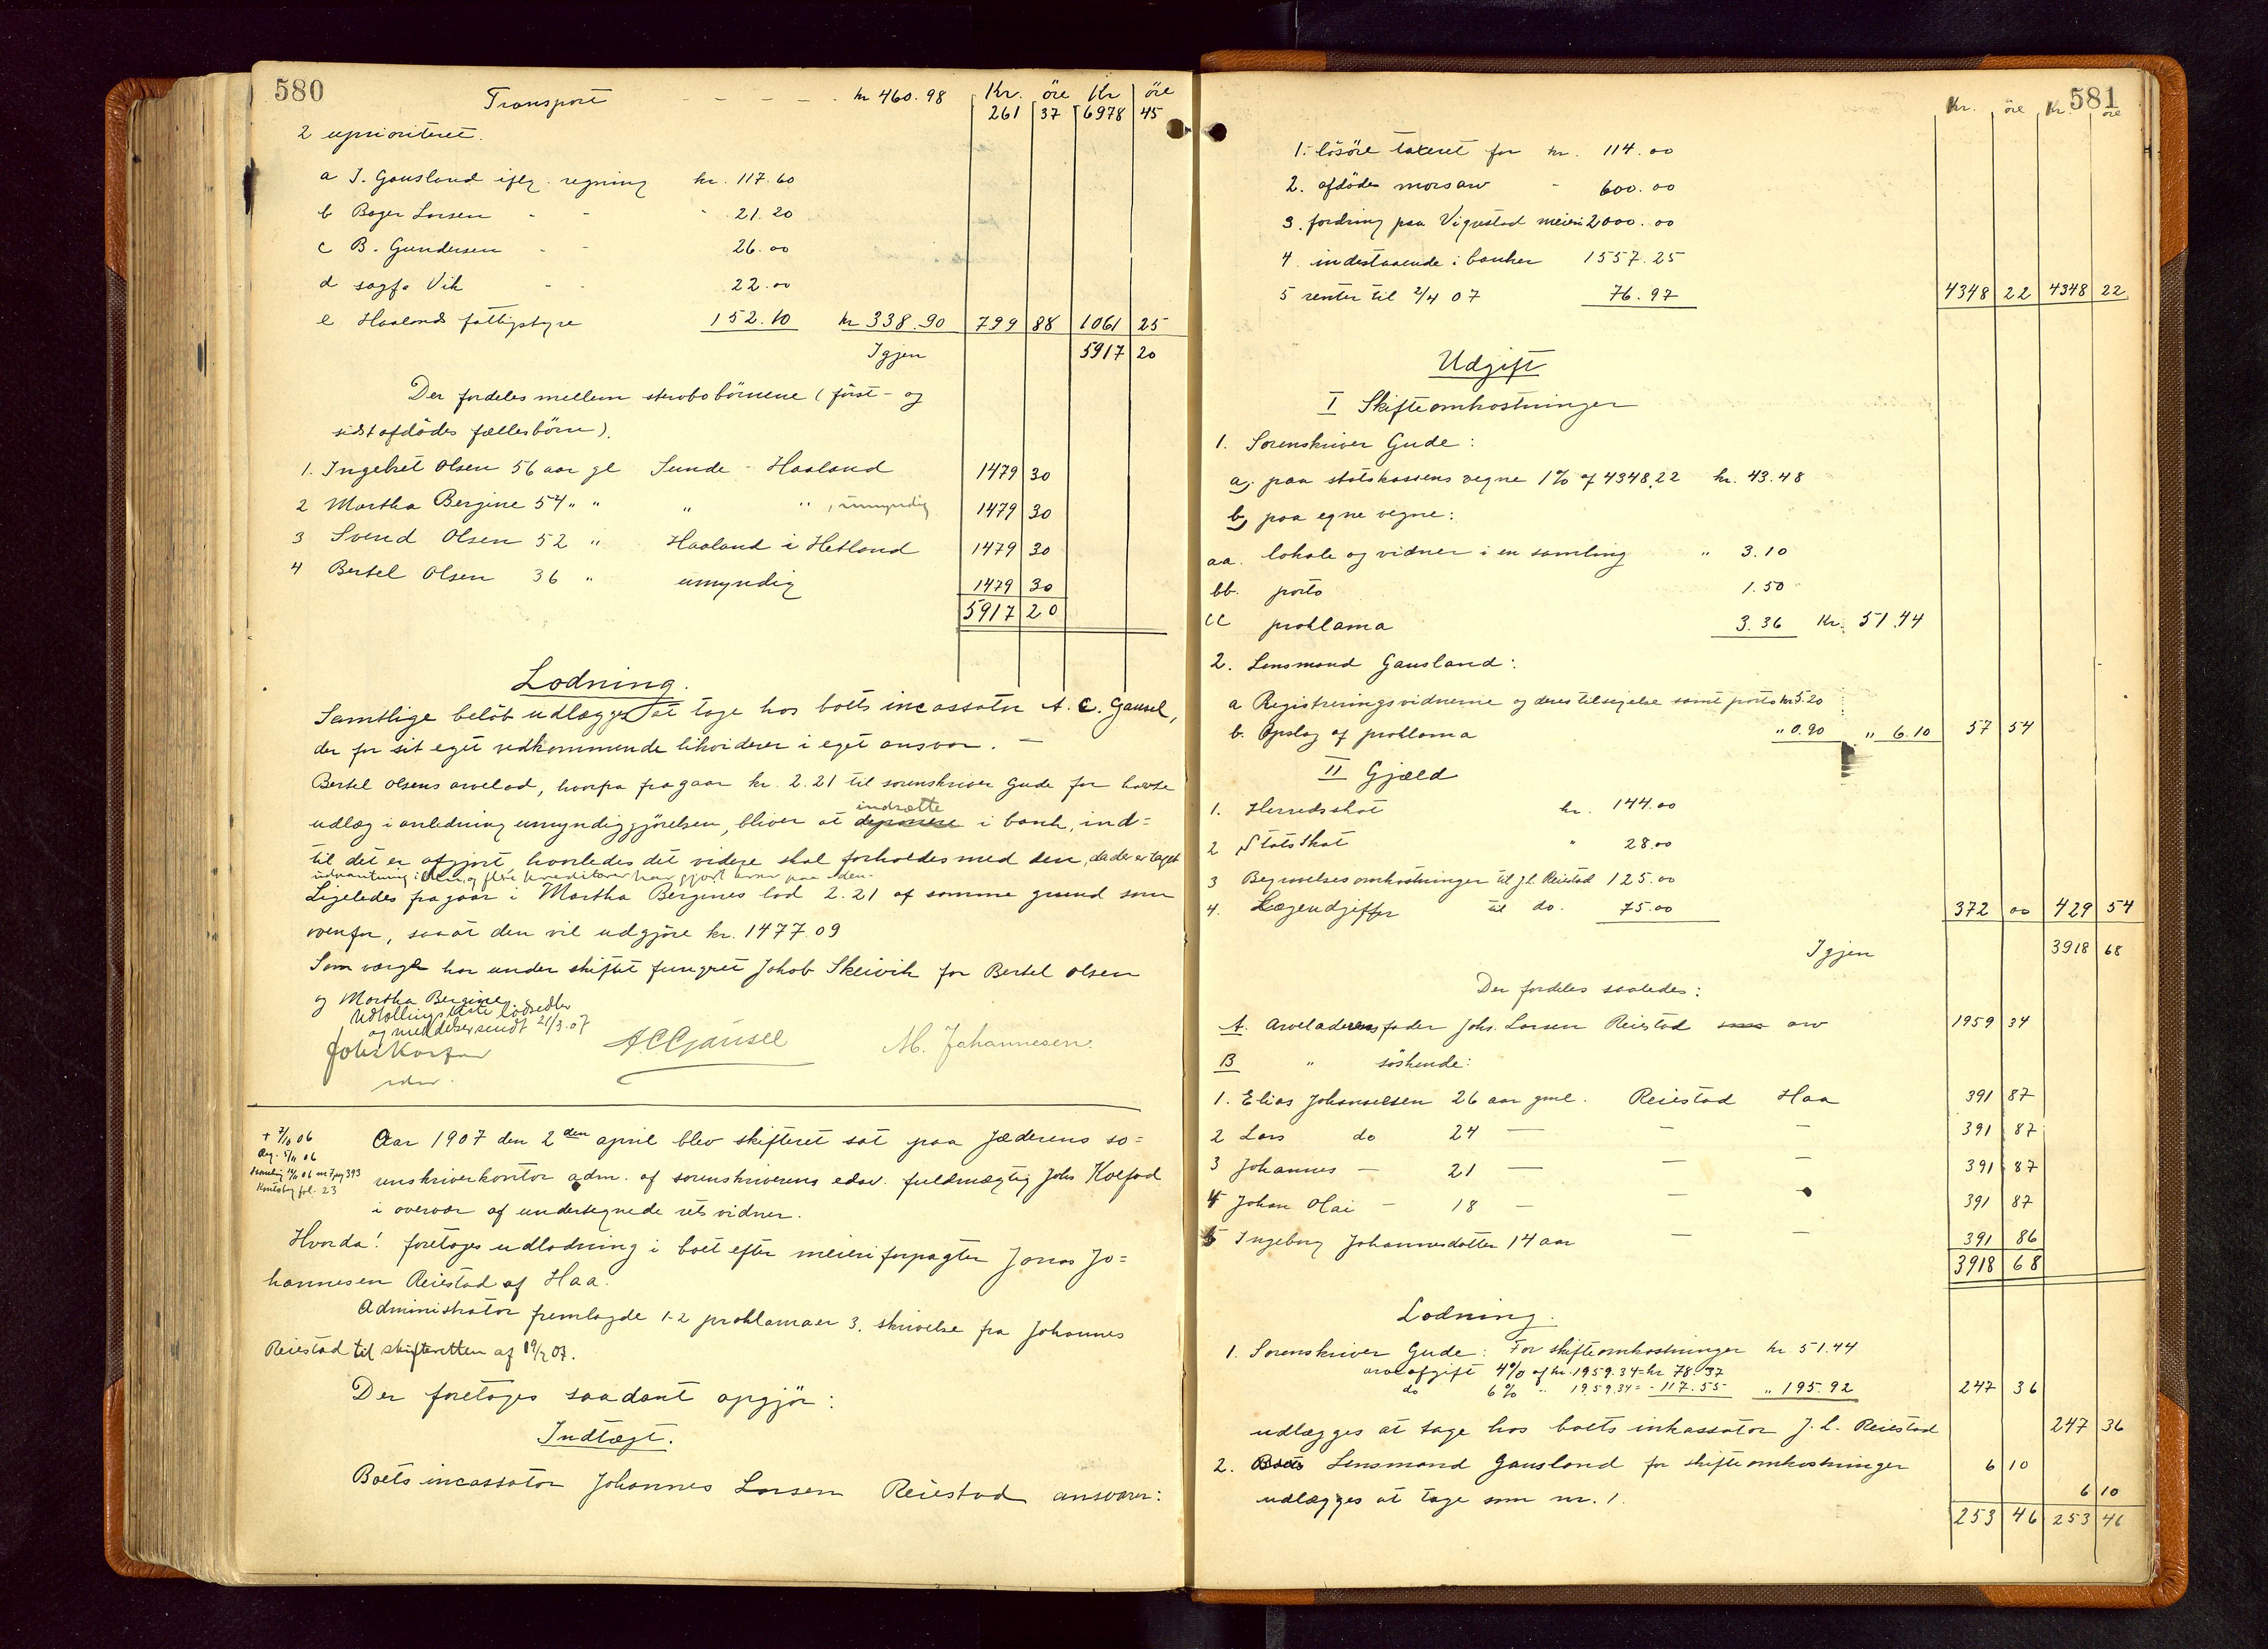 580
Kr. öre Kr öre
Transport - - - - kr 460.98 261 37 6978 45
2 uprioriteret.
a J. Gausland iflg. regning kr. 117.60
b Bager Larsen - - - 21.20
c B. Gundersen - - 26.00
d sagf. Vik - - 22.00
e Haalands fattigstyre 152.10 kr 338.90 799 88 1061 25
Igjen 5917 20
Der fordeles mellem sterbobörnene (först- og
sidstafdödes fællesbörn).
1. Ingebret Olsen 56 aar gl Sunde - Haaland 1479 30
2 Martha Bergine 54 " " " " , umyndig 1479 30
3 Svend Olsen 52 " Haaland i Hetland 1479 30
4 Bertel Olsen 36 " umyndig 1479 30
5917 20
Lodning.
Samtlige belöb udlægges at tage hos boets incassator A. C. Gausel,
der for sit eget vedkommende likviderer i eget ansvar. —
Bertel Olsens arvelod, hvorpa fragaar kr. 2.21 til sorenskriver Gude for havte
indsætte
udlæg i anledning umyndiggjörelsen, bliver at deponere i bank, ind=
til det er afgjort, hvorledes det videre skal forholdes med den, da der er taget
udpantning i den, og flere kreditorer har gjort krav paa den.
Ligeledes fragaar i Martha Bergines lod 2.21 af samme grund som
ovenfor, saaat den vil udgjöre kr. 1477.09
Som værge har under skiftet fungeret Jakob Skeivik for Bertel Olsen
og Martha Bergine.
Udlodningsliste lodsedler
og meddelser sendt 21/3.07
Johs Kolfod
edsv.
A C Gausel
M. Johannesen.
+ 7/10 06
Reg. 5/11 06
06 pag 393
fol. 23
Aar 1907 den 2den april blev skifteret sat paa Jæderens so=
renskriverkontor adm. af sorenskriverens edsv. fuldmægtig Johs Kolfod
i overvær af undertegnede retsvidner.
Hvorda! foretoges udlodning i boet efter meieriforpagter Jonas Jo=
hannesen Reiestad af Haa.
Administrator fremlagde 1-2 proklamaer 3. skrivelse fra Johannes
Reiestad til skifteretten af 19/2 07.
Der foretoges saadant opgjör:
Indtægt.
Boets incassator Johannes Larsen Reiestad ansvarer:
581
Kr. öre Kr. öre
1. lösöre taxeret for kr. 114.00
2. afdödes morsarv - 600.00
3. fordring paa Vigrestad meieri 2000.00
4. indestaaende i banker 1557.25
5 renter til 2/4 07 76.97 4348 22 4348 22
Udgift
I Skifteomkostninger
1. Sorenskriver Gude:
a, paa statskassens vegne 1% af 4348,22 kr. 43.48
b, paa egne vegne:
aa. lokale og vidner i en samling " 3.10
bb. porto 1.50
cc proklama 3.36 Kr. 51.44
2. Lensmand Gausland:
a Registreringsvidnerne og deres tilsigelse samt porto kr 5.20
b. Opslag af proklama " 0.90 " 6.10 57 54
II Gjæld
1. Herredsskat kr. 144.00
2 Statsskat " 28.00
3 Begravelsesomkostninger til J. L. Reiestad 125.00
4. Lægeudgifter til do. 75.00 372 00 429 54
Igjen 3918 68
Der fordeles saaledes:
A. Arveladerens fader Johs. Larsen Reiestad som arv 1959 34
B " söskende:
1. Elias Johannessen 26 aar gml. Reiestad Haa 391 87
2 Lars do 24 — — — 391 87
3 Johannes — 21 — — — 391 87
4 Johan Olai — 18 — — 391 87
5 Ingeborg Johannesdatter 14 aar — — 391 86
3918 68
Lodning.
1. Sorenskriver Gude: For skifteomkostninger kr 51.44
arveafgift 4% af kr. 1959.34 = kr 78.37
do 6% " 1959.34 = - 117.55 " 195.92 247 36
udlægges at tage hos boets inkassator J. L. Reiestad 247 36
2. Boets Lensmand Gausland for skifteomkostninger 6 10
udlægges at tage som nr. 1. 6 10
253 46 253 46